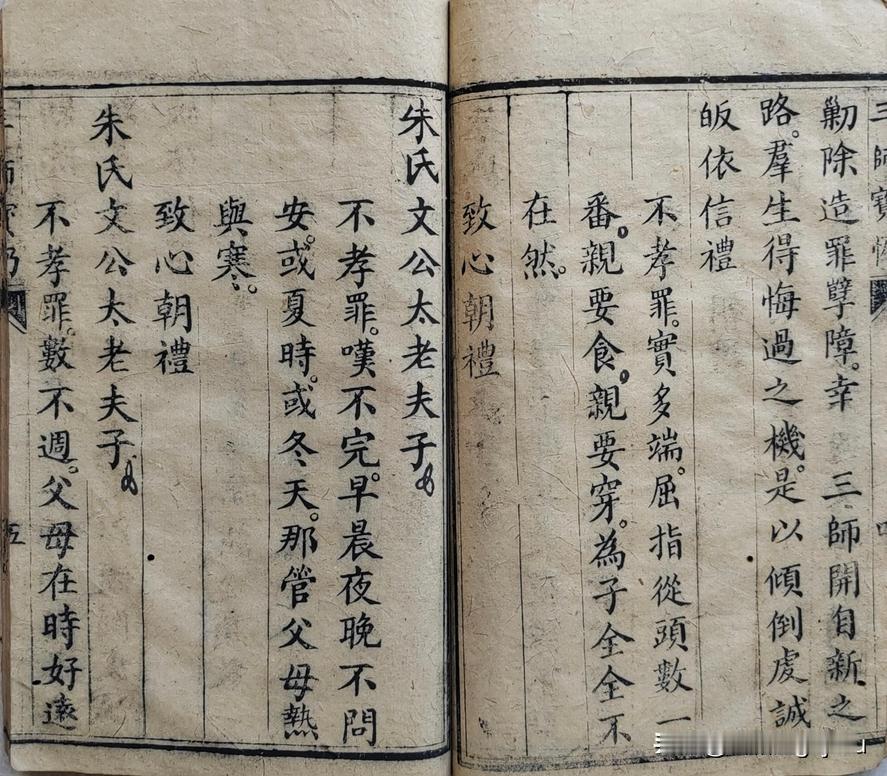 三師寶懺
剿除造罪孽障。幸 三師開自新之
路。羣生得悔過之機。是以傾倒虔誠
皈依信禮
不孝罪。實多端。屈指從頭數一
番。親要食。親要穿。為子全全不
在然。
致心朝禮
朱氏文公太老夫子
不孝罪。嘆不完。早晨夜晚不問
安。或夏時。或冬天。那管父母熱
與寒。
致心朝禮
朱氏文公太老夫子
不孝罪。數不週。父母在時好遠
五